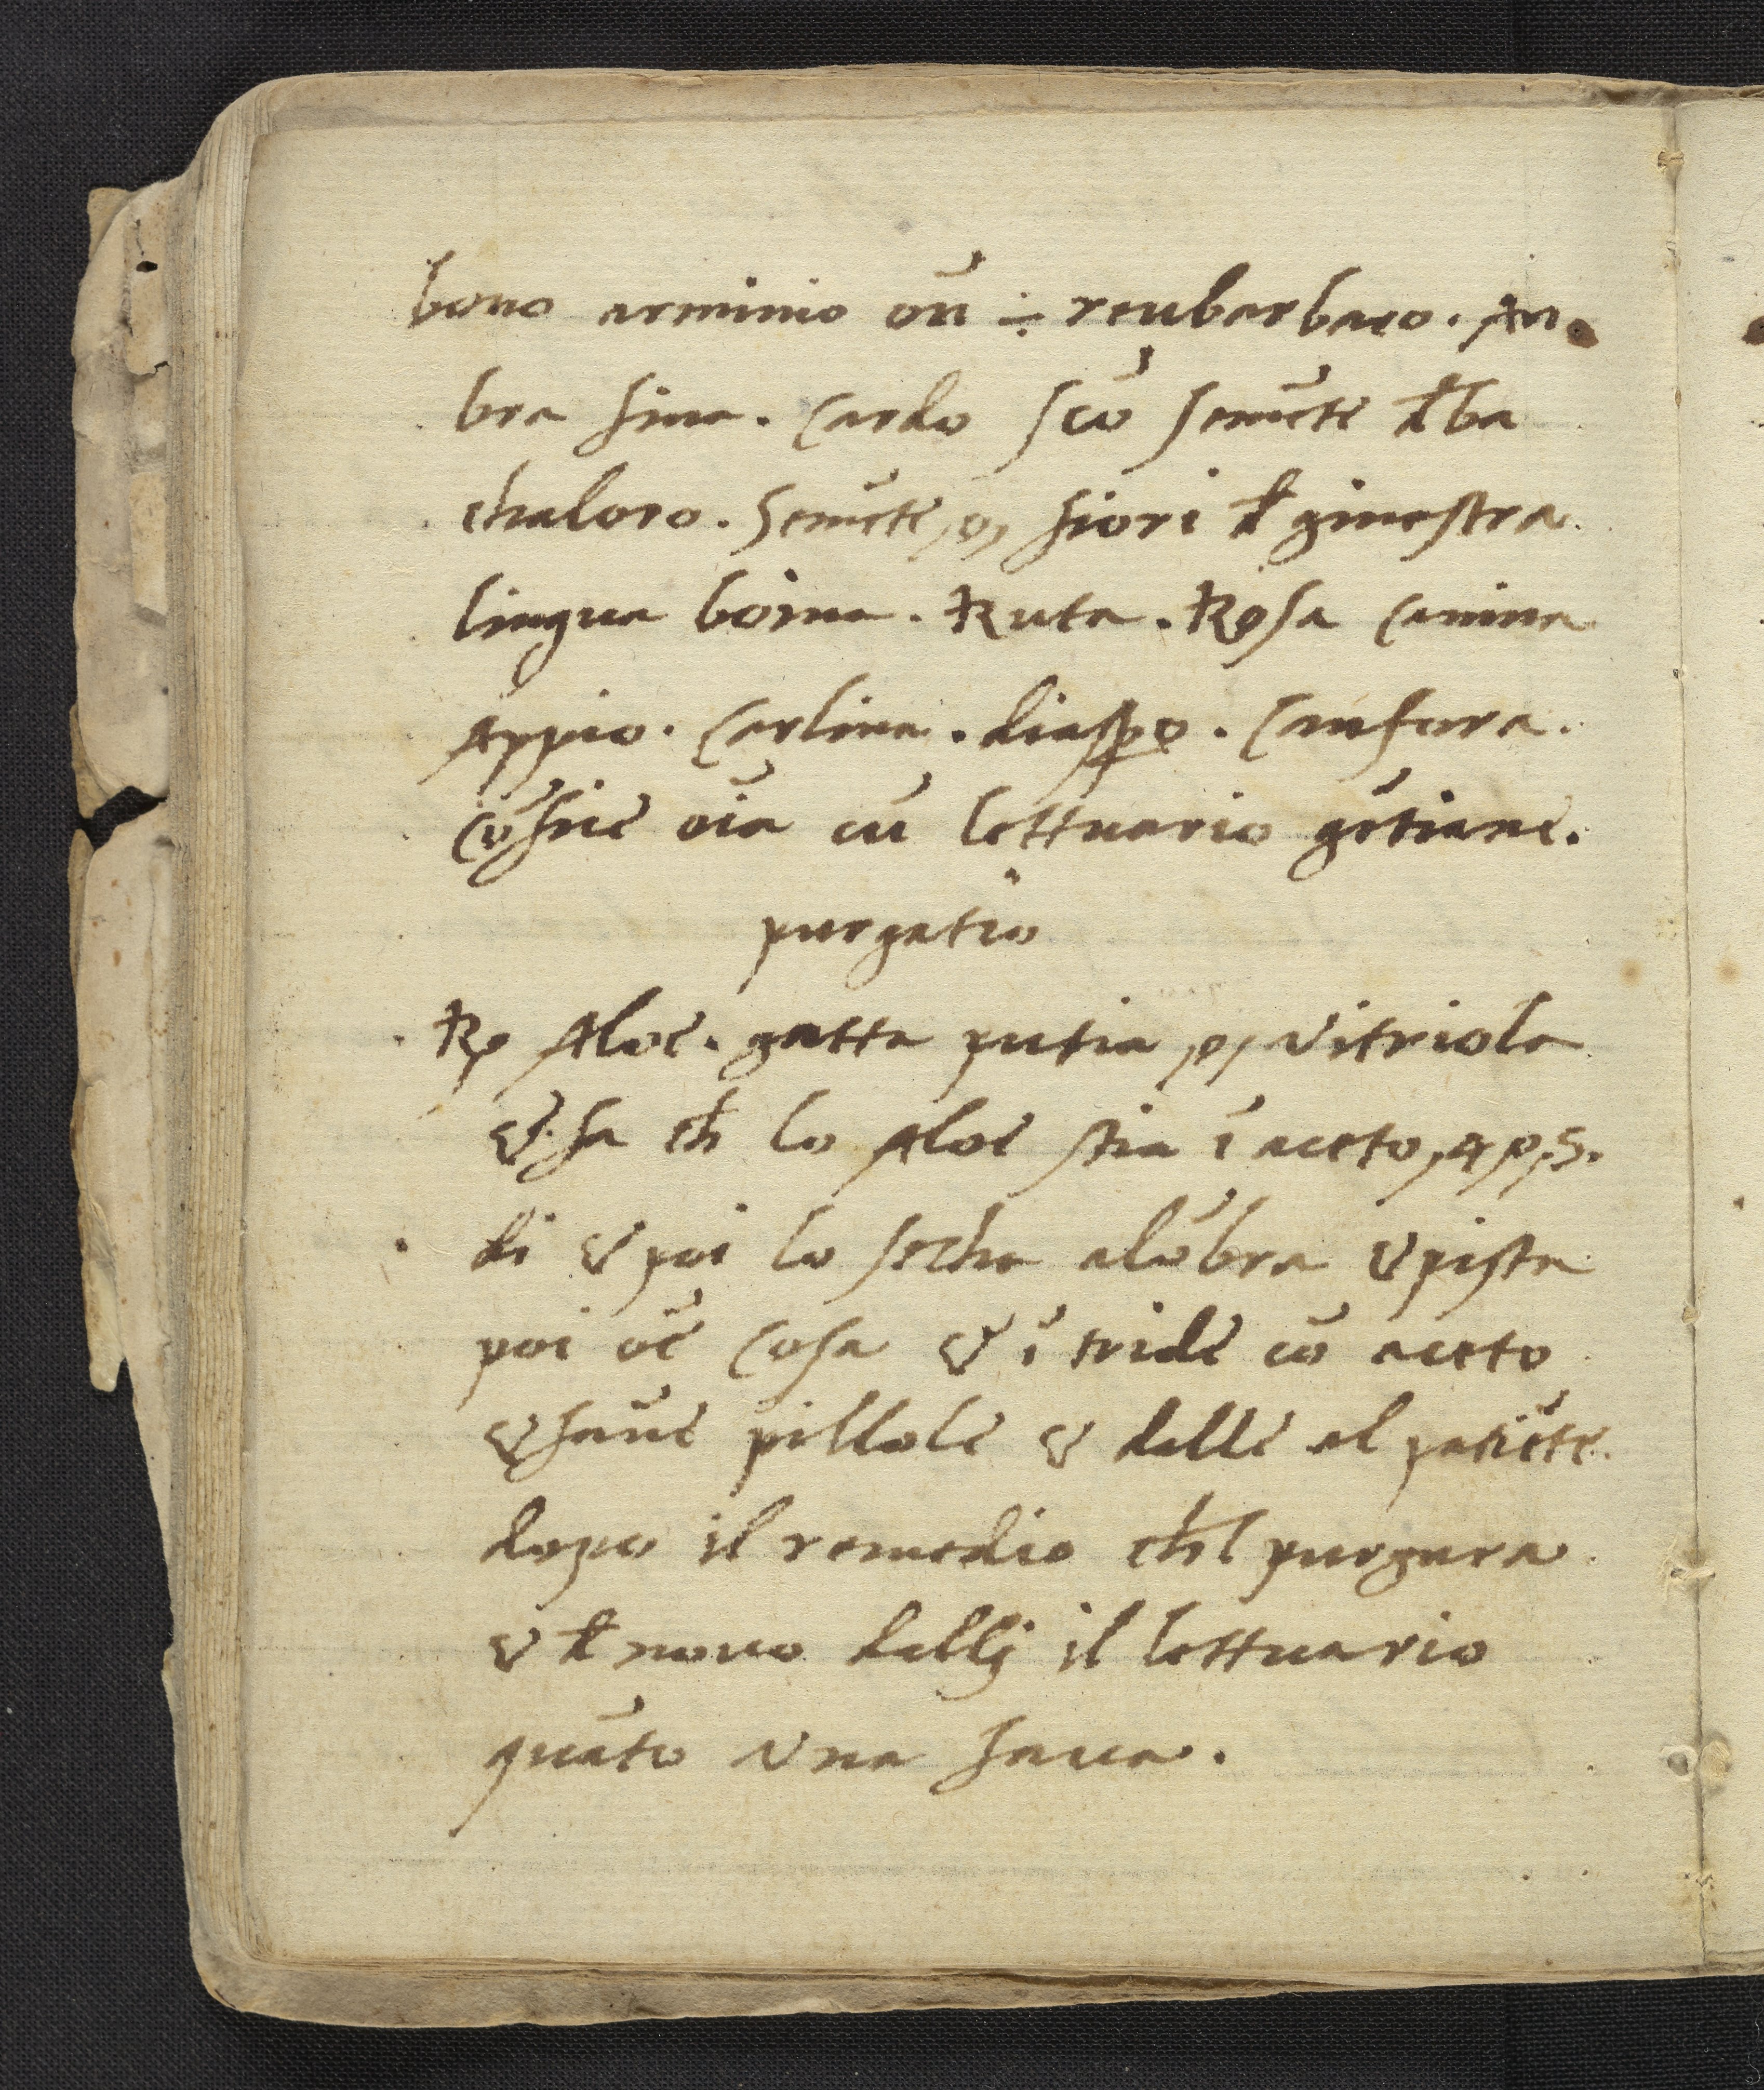 bono arminio oñ ÷ reubarbaro. An
bra fina. Cardo scō semēte đ ba
chaloro. Semēte, o, fiori đ ginestra
lingua boina. Ruta. Rosa canina
Appio. Carlina. diaspo. Canfora.
cōfice oīa cū lettuario gētiane.
purgatio
Rp Aloe. gatta putia, o, vitriola
& fa cħ lo Aloe stia ī aceto, 4, o, 5.
di & poi lo secha alōbra & pista
poi oē cosa & ītride cō aceto
& fāne pillole & dalle al patiēte
dopo il remedio cħl purgara
& đ novo dallj il lettuario
quāto una fava.